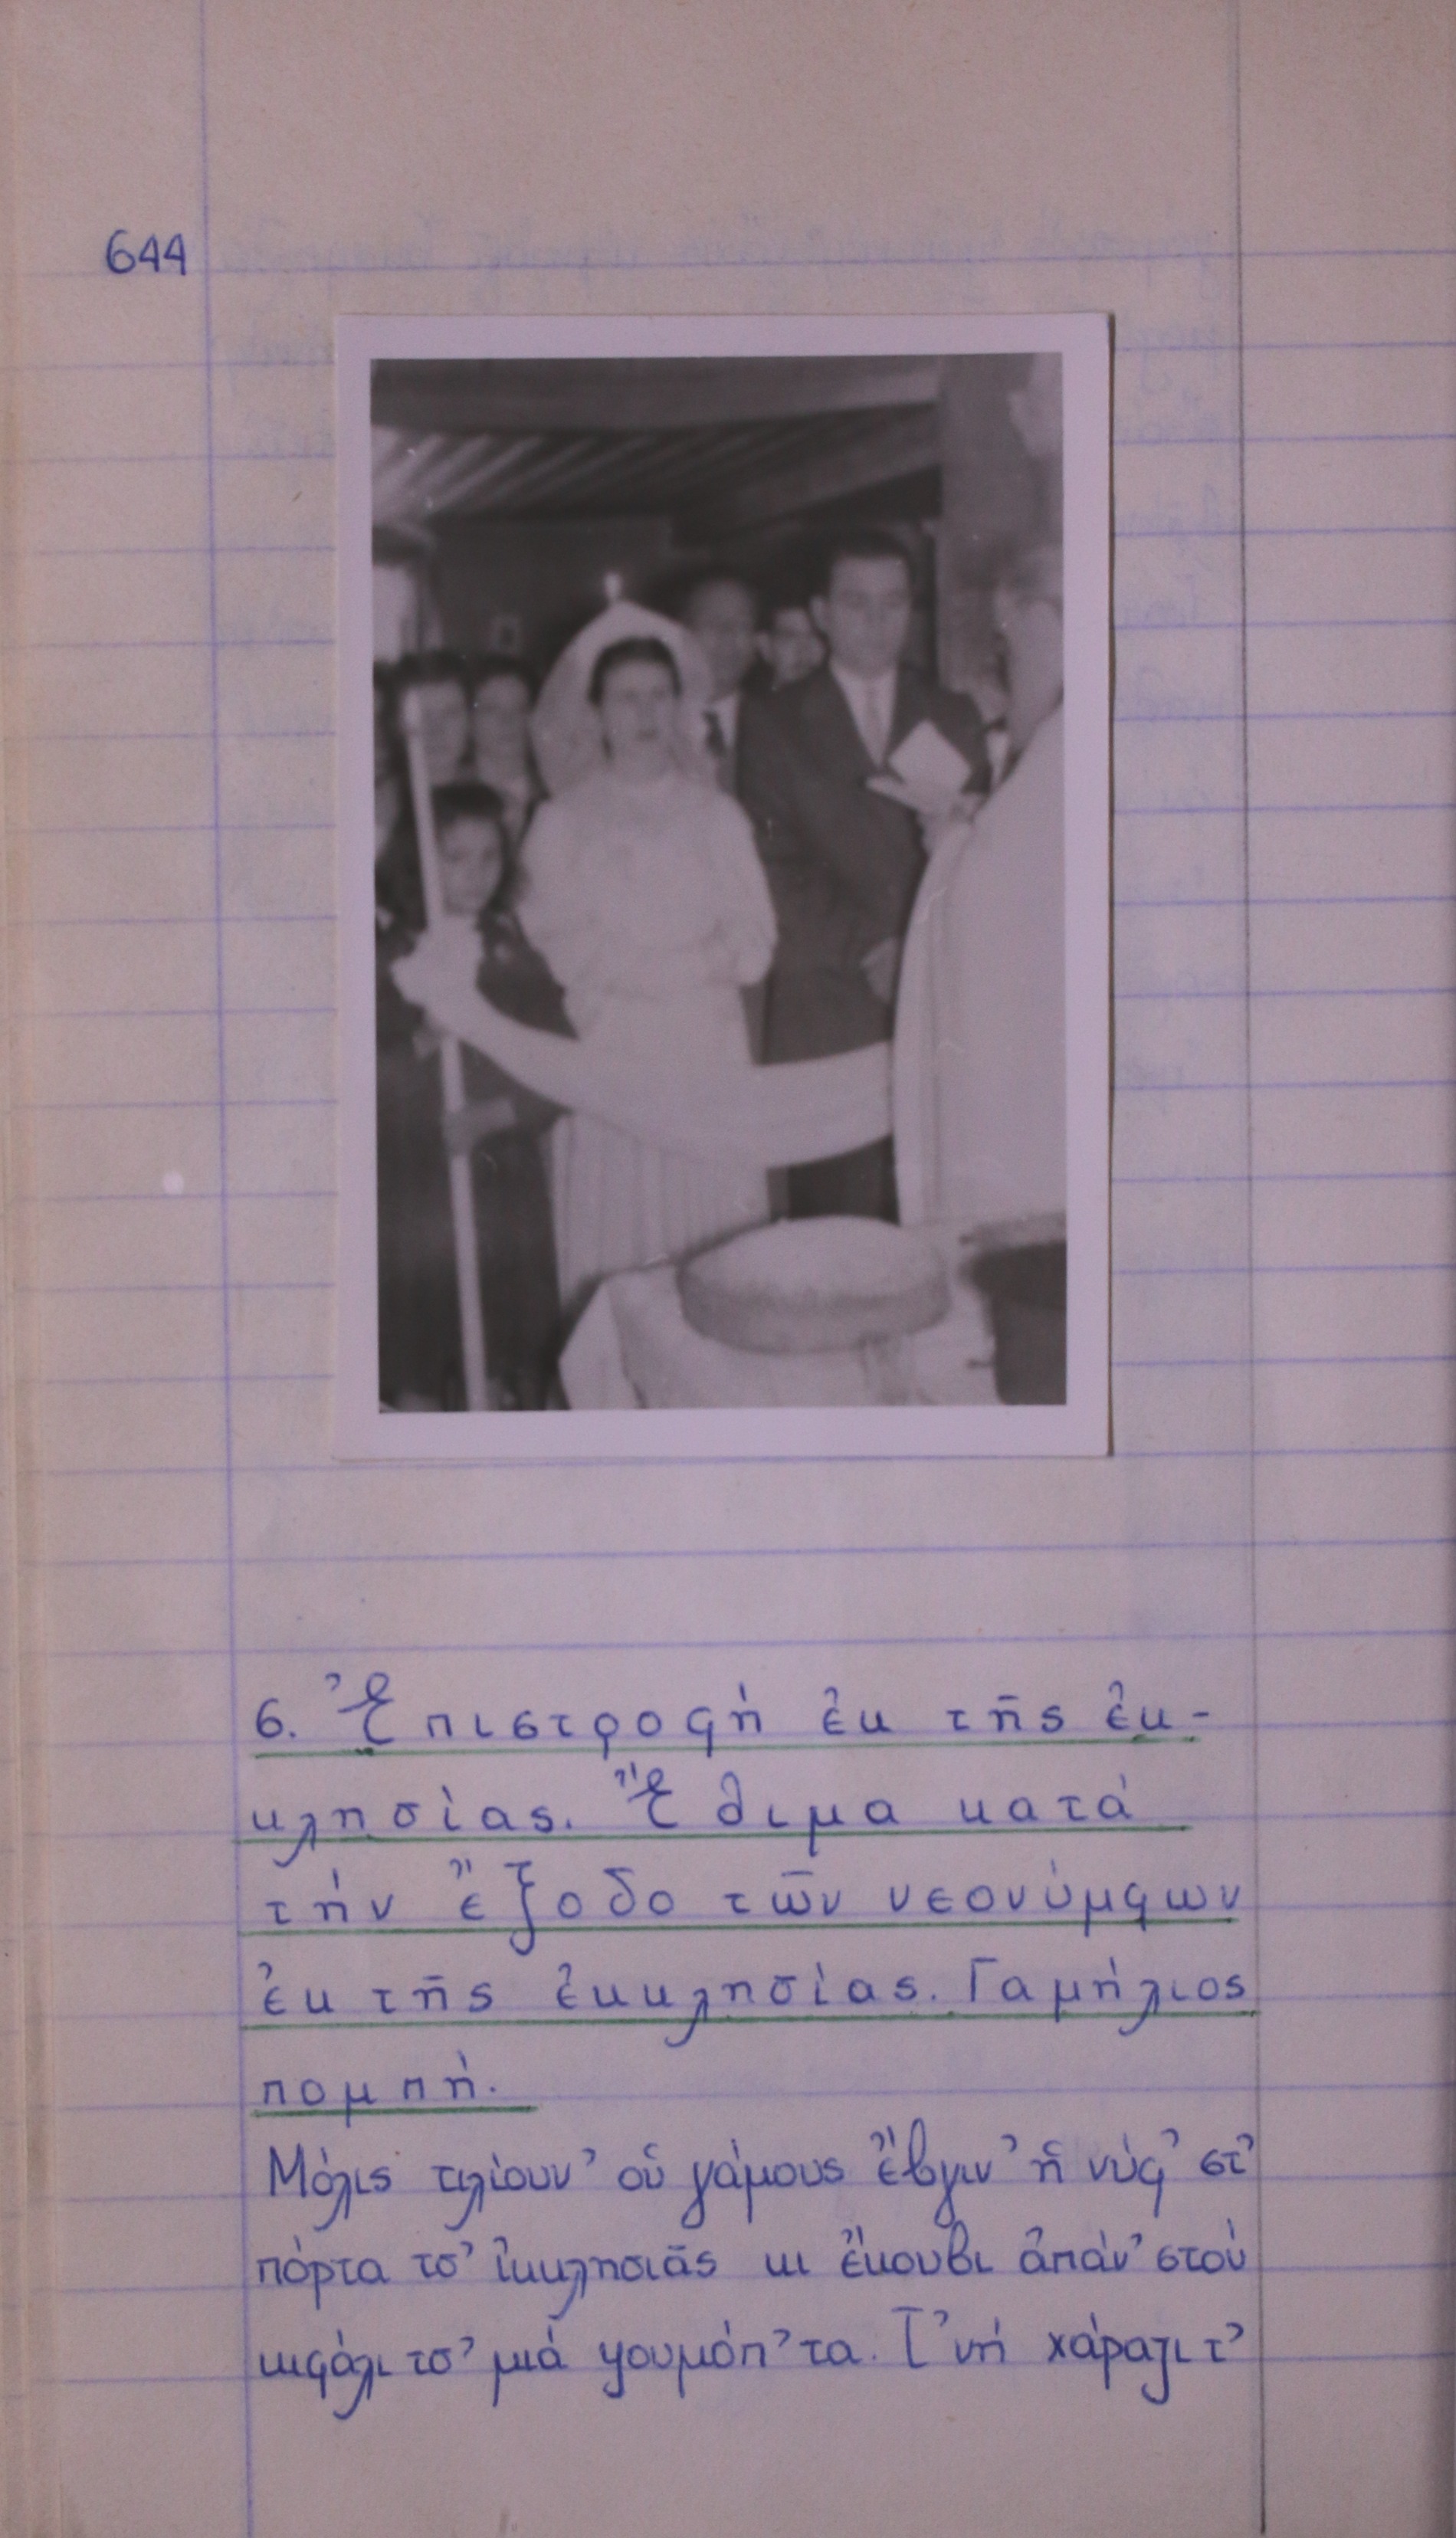 644
6. Ἐπιστροφή ἐκ τῆς ἐκ-
κλησίας. Ἔθιμα κατά
τήν ἔξοδο τῶν νεονύμφων
ἐκ τῆς ἐκκλησίας. Γαμήλιος
πομπή.
Μόλις τιλίουν' οὑ γάμους ἔβγιν' ἡ νύφ' στ'
πόρτα τσ' ἰκκλησιᾶς κι ἔκουβι ἀπάν' στού
κιφάλι τσ' μιά ψουμόπ'τα. Τ'νή χάραζι τ'